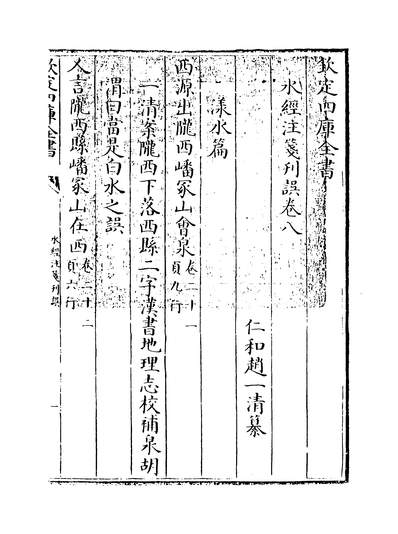 欽定四庫全書
水經注箋刋誤卷八
仁和趙一清纂
漾水篇
西源出隴西嶓冢山會泉卷二十一頁九行
一清案隴西下落西縣二字漢書地理志校補泉胡
渭曰當是白水之誤
今言隴西縣嶓冢山在西卷二十二頁六行
欽定四庫全書
水經注箋刋誤
一